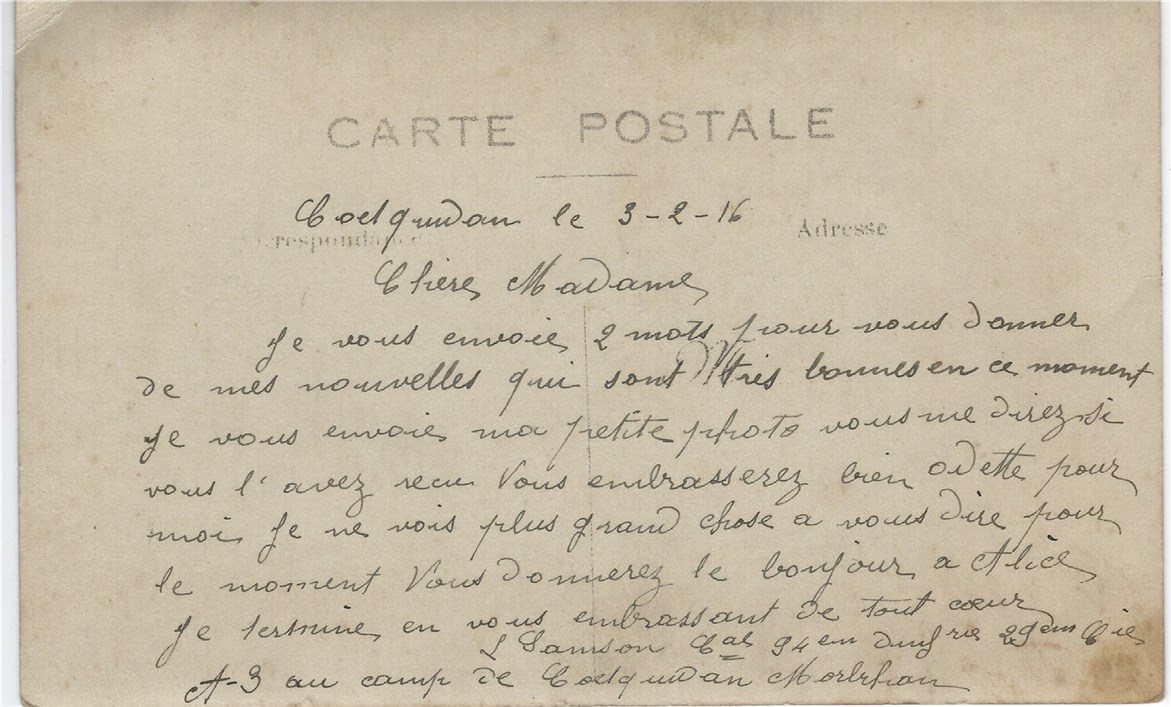 CARTE POSTALE
Coëtquidan le 3-2-16
Correspondance
Adresse
Chère Madame
Je vous envoie 2 mots pour vous donner
de mes nouvelles qui sont très bonnes en ce moment
Je vous envoie ma petite photo vous me direz si
vous l'avez recu Vous embrasserez bien Odette pour
moi Je ne vois plus grand chose a vous dire pour
le moment Vous donnerez le bonjour a Alice
Je termine en vous embrassant de tout cœur
L Samson Cal 94em 29em Cie
A-3 au camp de Coetquidan Morbihan